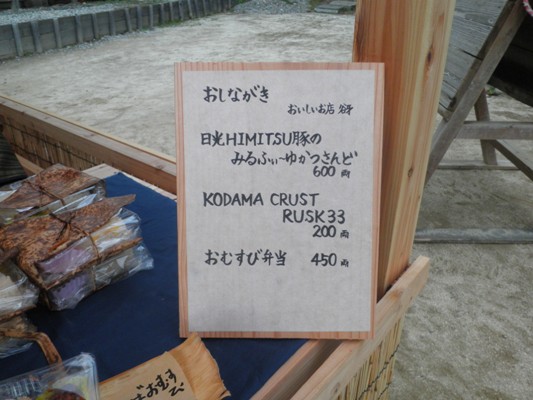 おしながき
おいしいお店
日光HIMITSU豚の
みるふぃ〜ゆかつさんど
600両
KODAMA CRUST
RUSK33
200両
おむすび弁当 450両
おむすび